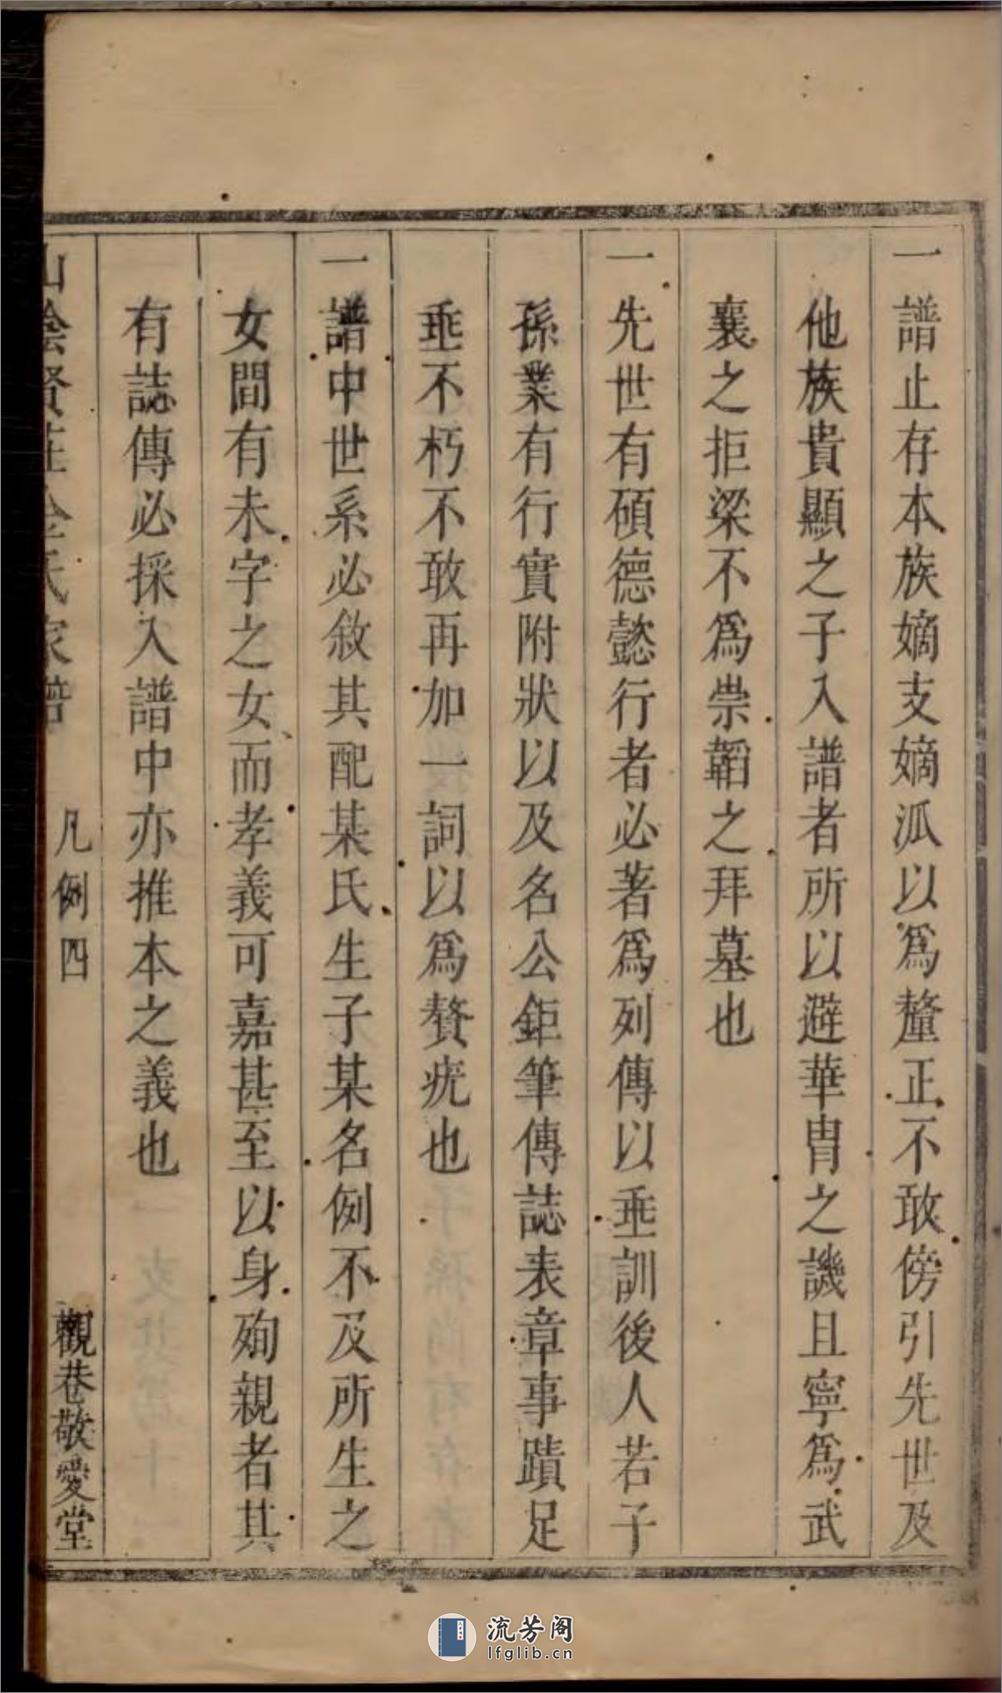 一譜止存本族嫡支嫡派以爲釐正不敢傍引先世及
他族貴顯之子入譜者所以避華胄之譏且寧爲武
襄之拒梁不爲崇韜之拜墓也
一先世有碩德懿行者必著爲列傳以垂訓後人若子
孫業有行實附狀以及名公鉅筆傳誌表章事蹟足
垂不朽不敢再加一詞以爲贅疣也
一譜中世系必敘其配某氏生子某名例不及所生之
女間有未字之女而孝義可嘉甚至以身殉親者其
有誌傳必採入譜中亦推本之義也
山陰賢莊金氏家譜 凡例四 觀巷敬愛堂
流芳阁
lfglib.cn